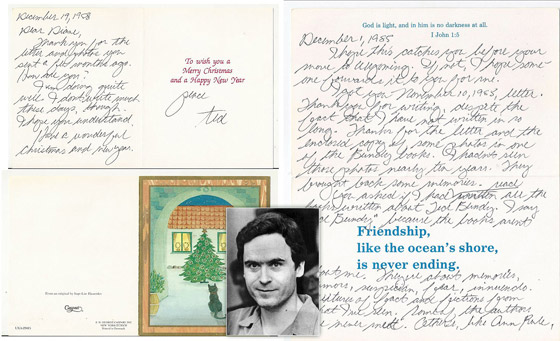 December 19, 1988
Dear Diane,
Thank you for the
letter and photos you
sent a few months ago.
How are you?
I am doing quite
well. I don't write much
these days, though.
I hope you understand
Have a wonderful
Christmas and new year.
To wish you a
Merry Christmas
and a Happy New Year
peace
ted
God is light, and in him is no darkness at all.
I John 1:5
December 1, 1985
I hope this catches you before your
move to Wyoming. If not, I hope some-
one forwards it to you for me.
I got you November 10, 1985, letter.
Thank you for writing, despite the
fact that I have not written in so
long. Thanks for the letter and the
enclosed copy of some photos in one
of the Bundy books. I hadn't seen
those photos nearly ten years. They
brought back some memories.
You asked if I had written read all the
books written about "Ted Bundy." I say
"Ted Bundy," because the books aren't
Friendship,
like the ocean's shore,
is never ending.
about me. They're about memories,
rumors, suspicion, fear, innuendo.
mixtures of fact and fictions from
what I've seen. Some of the authors
I've never met. Others, like Ann Rule,